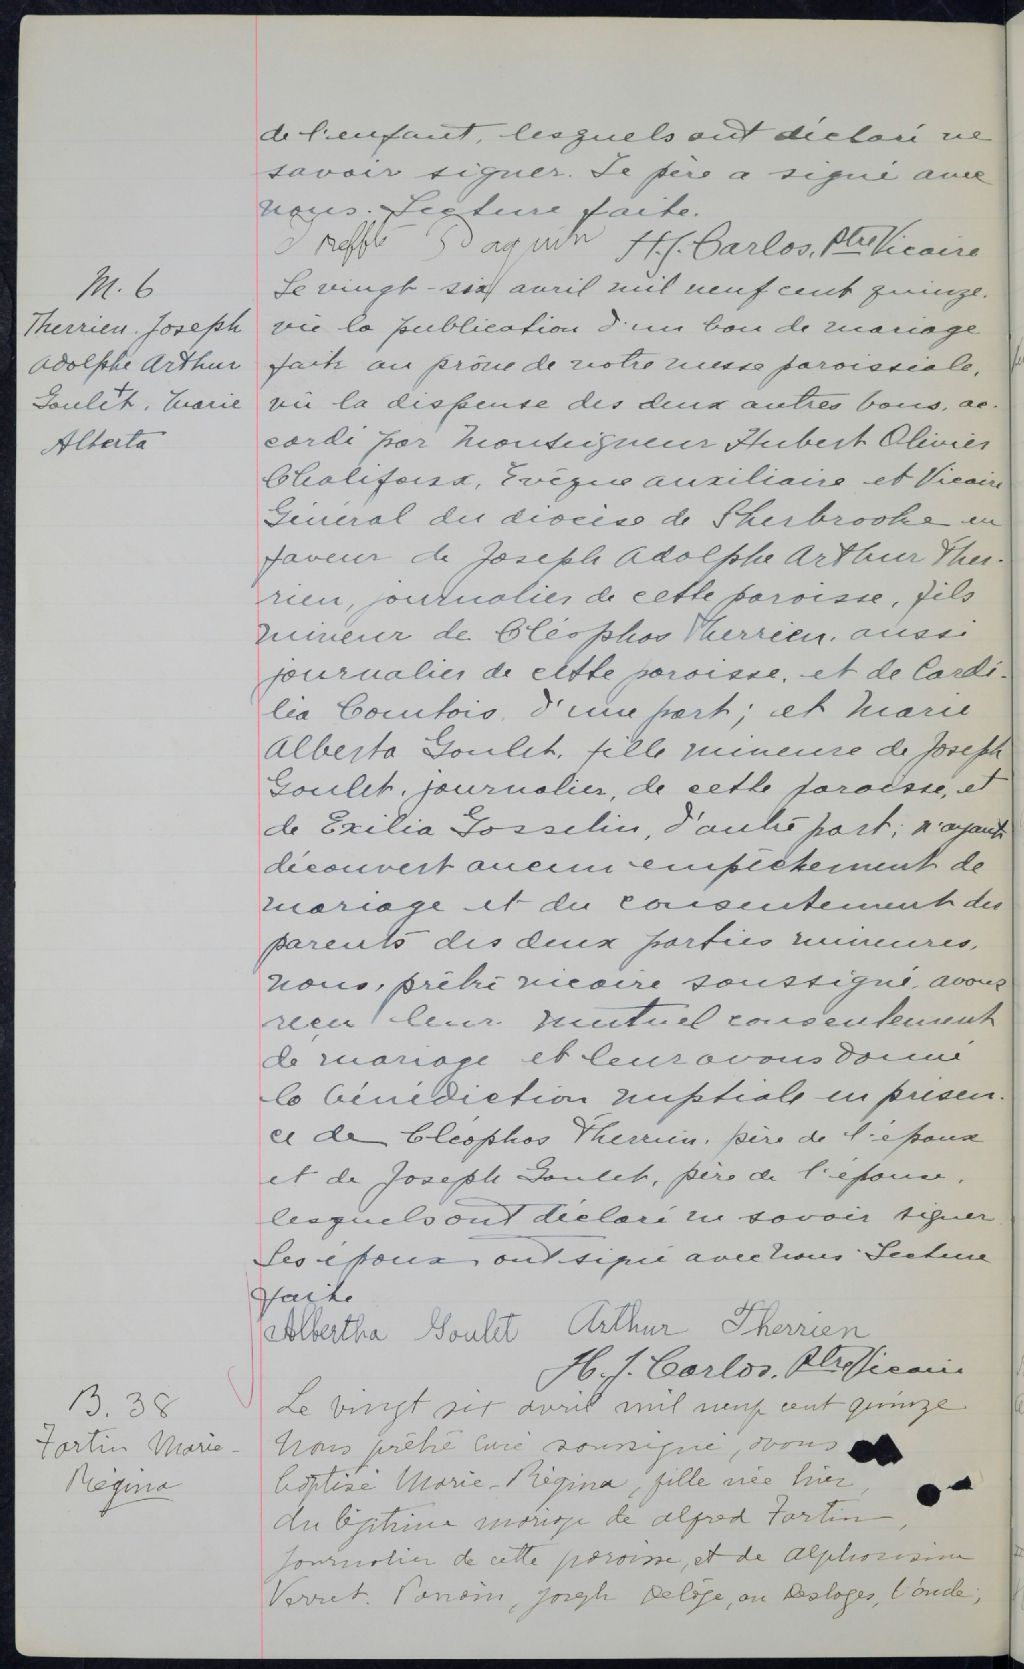 de l'enfant, lesquels ont déclaré ne
savoir signer. Le père a signé avec
nous. Lecture faite.
Treffle Paquin H.J. Carlos, Ptre Vicaire
M. 6
Therrien Joseph
Adolphe Arthur
+
Goulet, Marie
Alberta
Le vingt-six avril mil neuf cent quinze,
vu la publication d'un ban de mariage
faite au prône de notre messe paroissiale,
vu la dispense des deux autres bans, ac-
cordé par Monseigneur Hubert Olivier
Chalifoux, Evêque auxiliaire et Vicaire
Général du diocèse de Sherbrooke en
faveur de Joseph Adolphe Arthur Ther-
rien, journalier de cette paroisse, fils
mineur de Cléophas Therrien, aussi
journalier de cette paroisse, et de Cordé-
lia Comtois, d'une part; et Marie
Alberta Goulet, fille mineure de Joseph
Goulet, journalier, de cette paroisse, et
de Exilia Gosselin, d'autre part; n'ayant
découvert aucun empêchement de
mariage et du consentement des
parents des deux parties mineures,
nous, prêtre vicaire soussigné, avons
reçu leur mutuel consentement
de mariage et leur avons donné
la bénédiction nuptiale en présen-
ce de Cléophas Therrien, père de l'époux
et de Joseph Goulet, père de l'épouse,
lesquels ont déclaré ne savoir signer.
Les époux ont signé avec nous. Lecture
faite.
Albertha Goulet Arthur Therrien
H.J. Carlos, Ptre Vicaire
B. 38
Fortin Marie-
Régina
Le vingt six avril mil neuf cent quinze
Nous prêtre curé soussigné, avons
baptisé Marie-Régina, fille née hier,
du légitime mariage de Alfred Fortin,
journalier de cette paroisse, et de Alphonsine
Verret. Parrain, Joseph Deloge, ou Desloges, l'oncle,